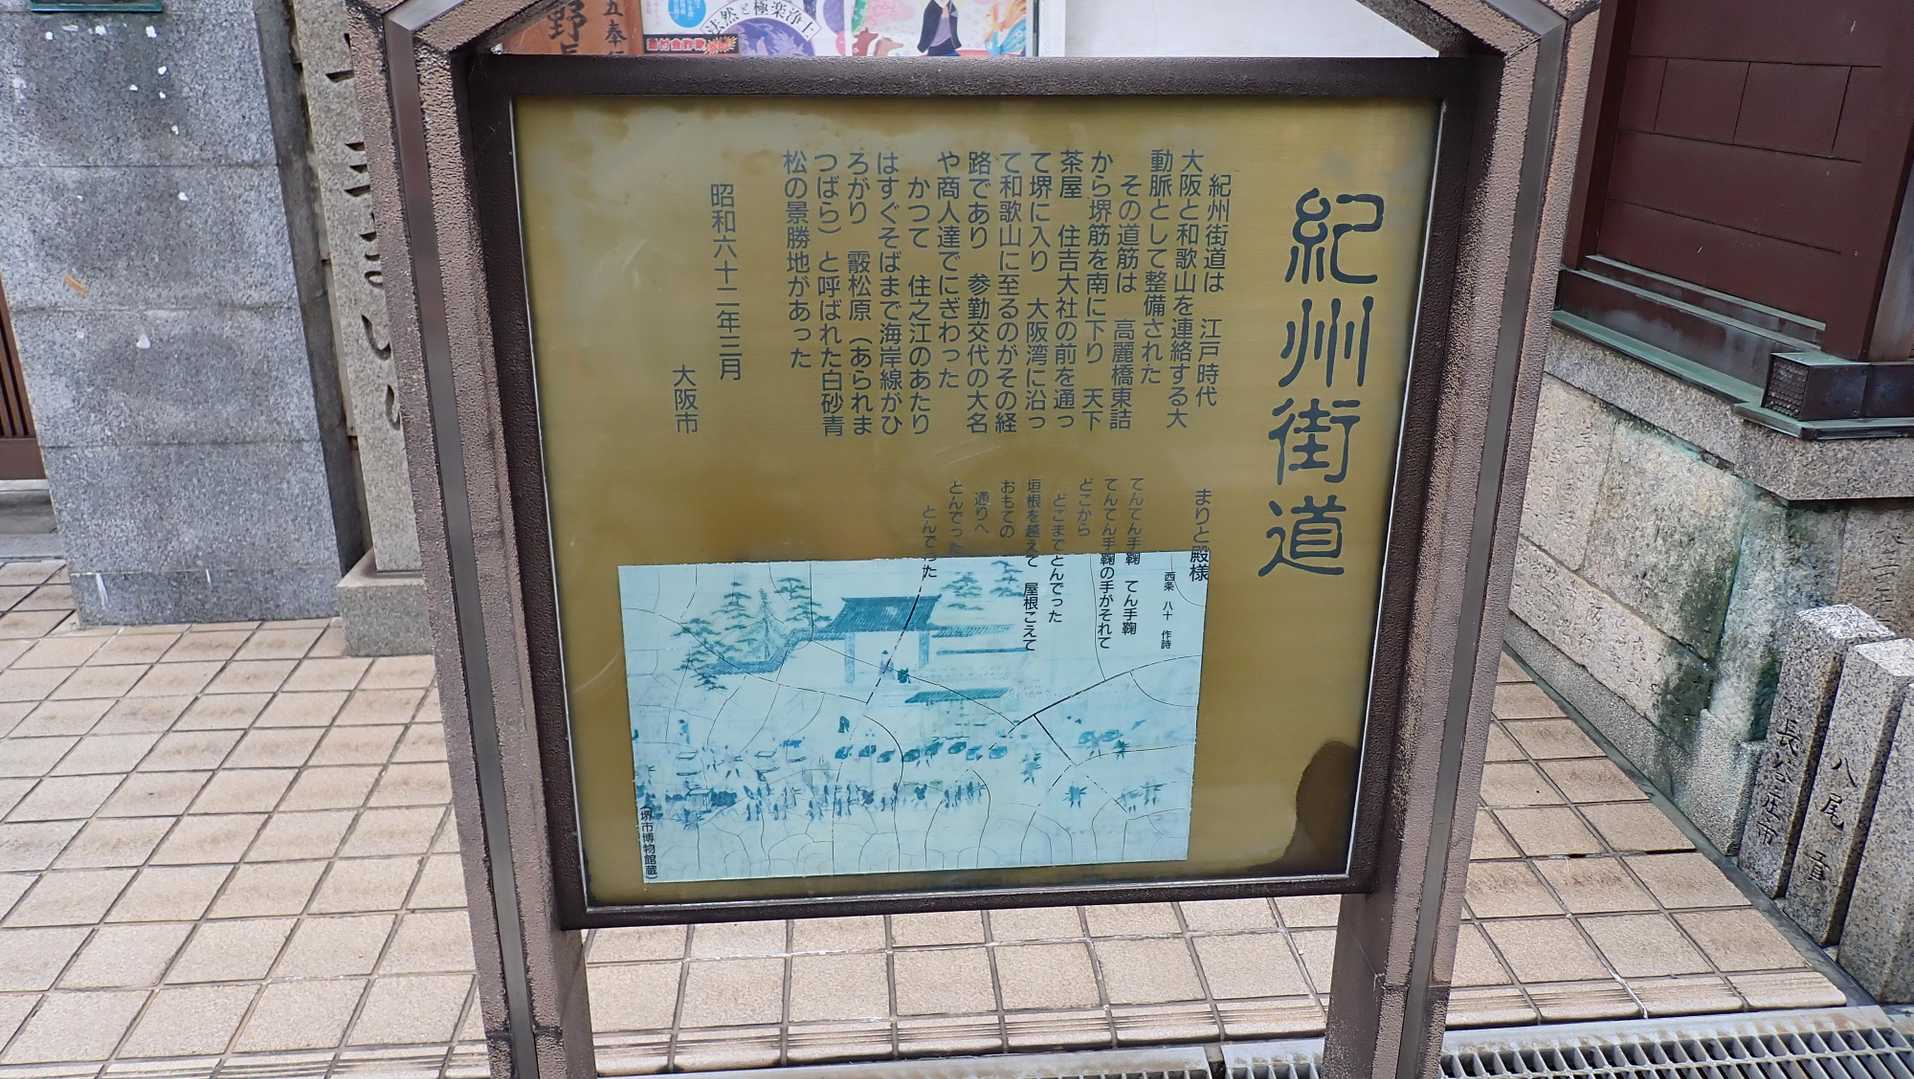 紀州街道
紀州街道は 江戸時代
大阪と和歌山を連絡する大
動脈として整備された
その道筋は 高麗橋東詰
から堺筋を南に下り 天下
茶屋 住吉大社の前を通っ
て堺に入り 大阪湾に沿っ
て和歌山に至るのがその経
路であり 参勤交代の大名
や商人達でにぎわった
かつて 住之江のあたり
はすぐそばまで海岸線がひ
ろがり 霰松原（あられま
つばら）と呼ばれた白砂青
松の景勝地があった
昭和六十二年三月
大阪市
まりと殿様
西条 八十 作詩
てんてん手鞠 てん手鞠
てんてん手鞠の手がそれて
どこから
どこまでとんでった
垣根を越えて 屋根こえて
おもての
通りへ
とんでった
とんでった
（堺市博物館蔵）
法然と極楽浄土
八尾 貢